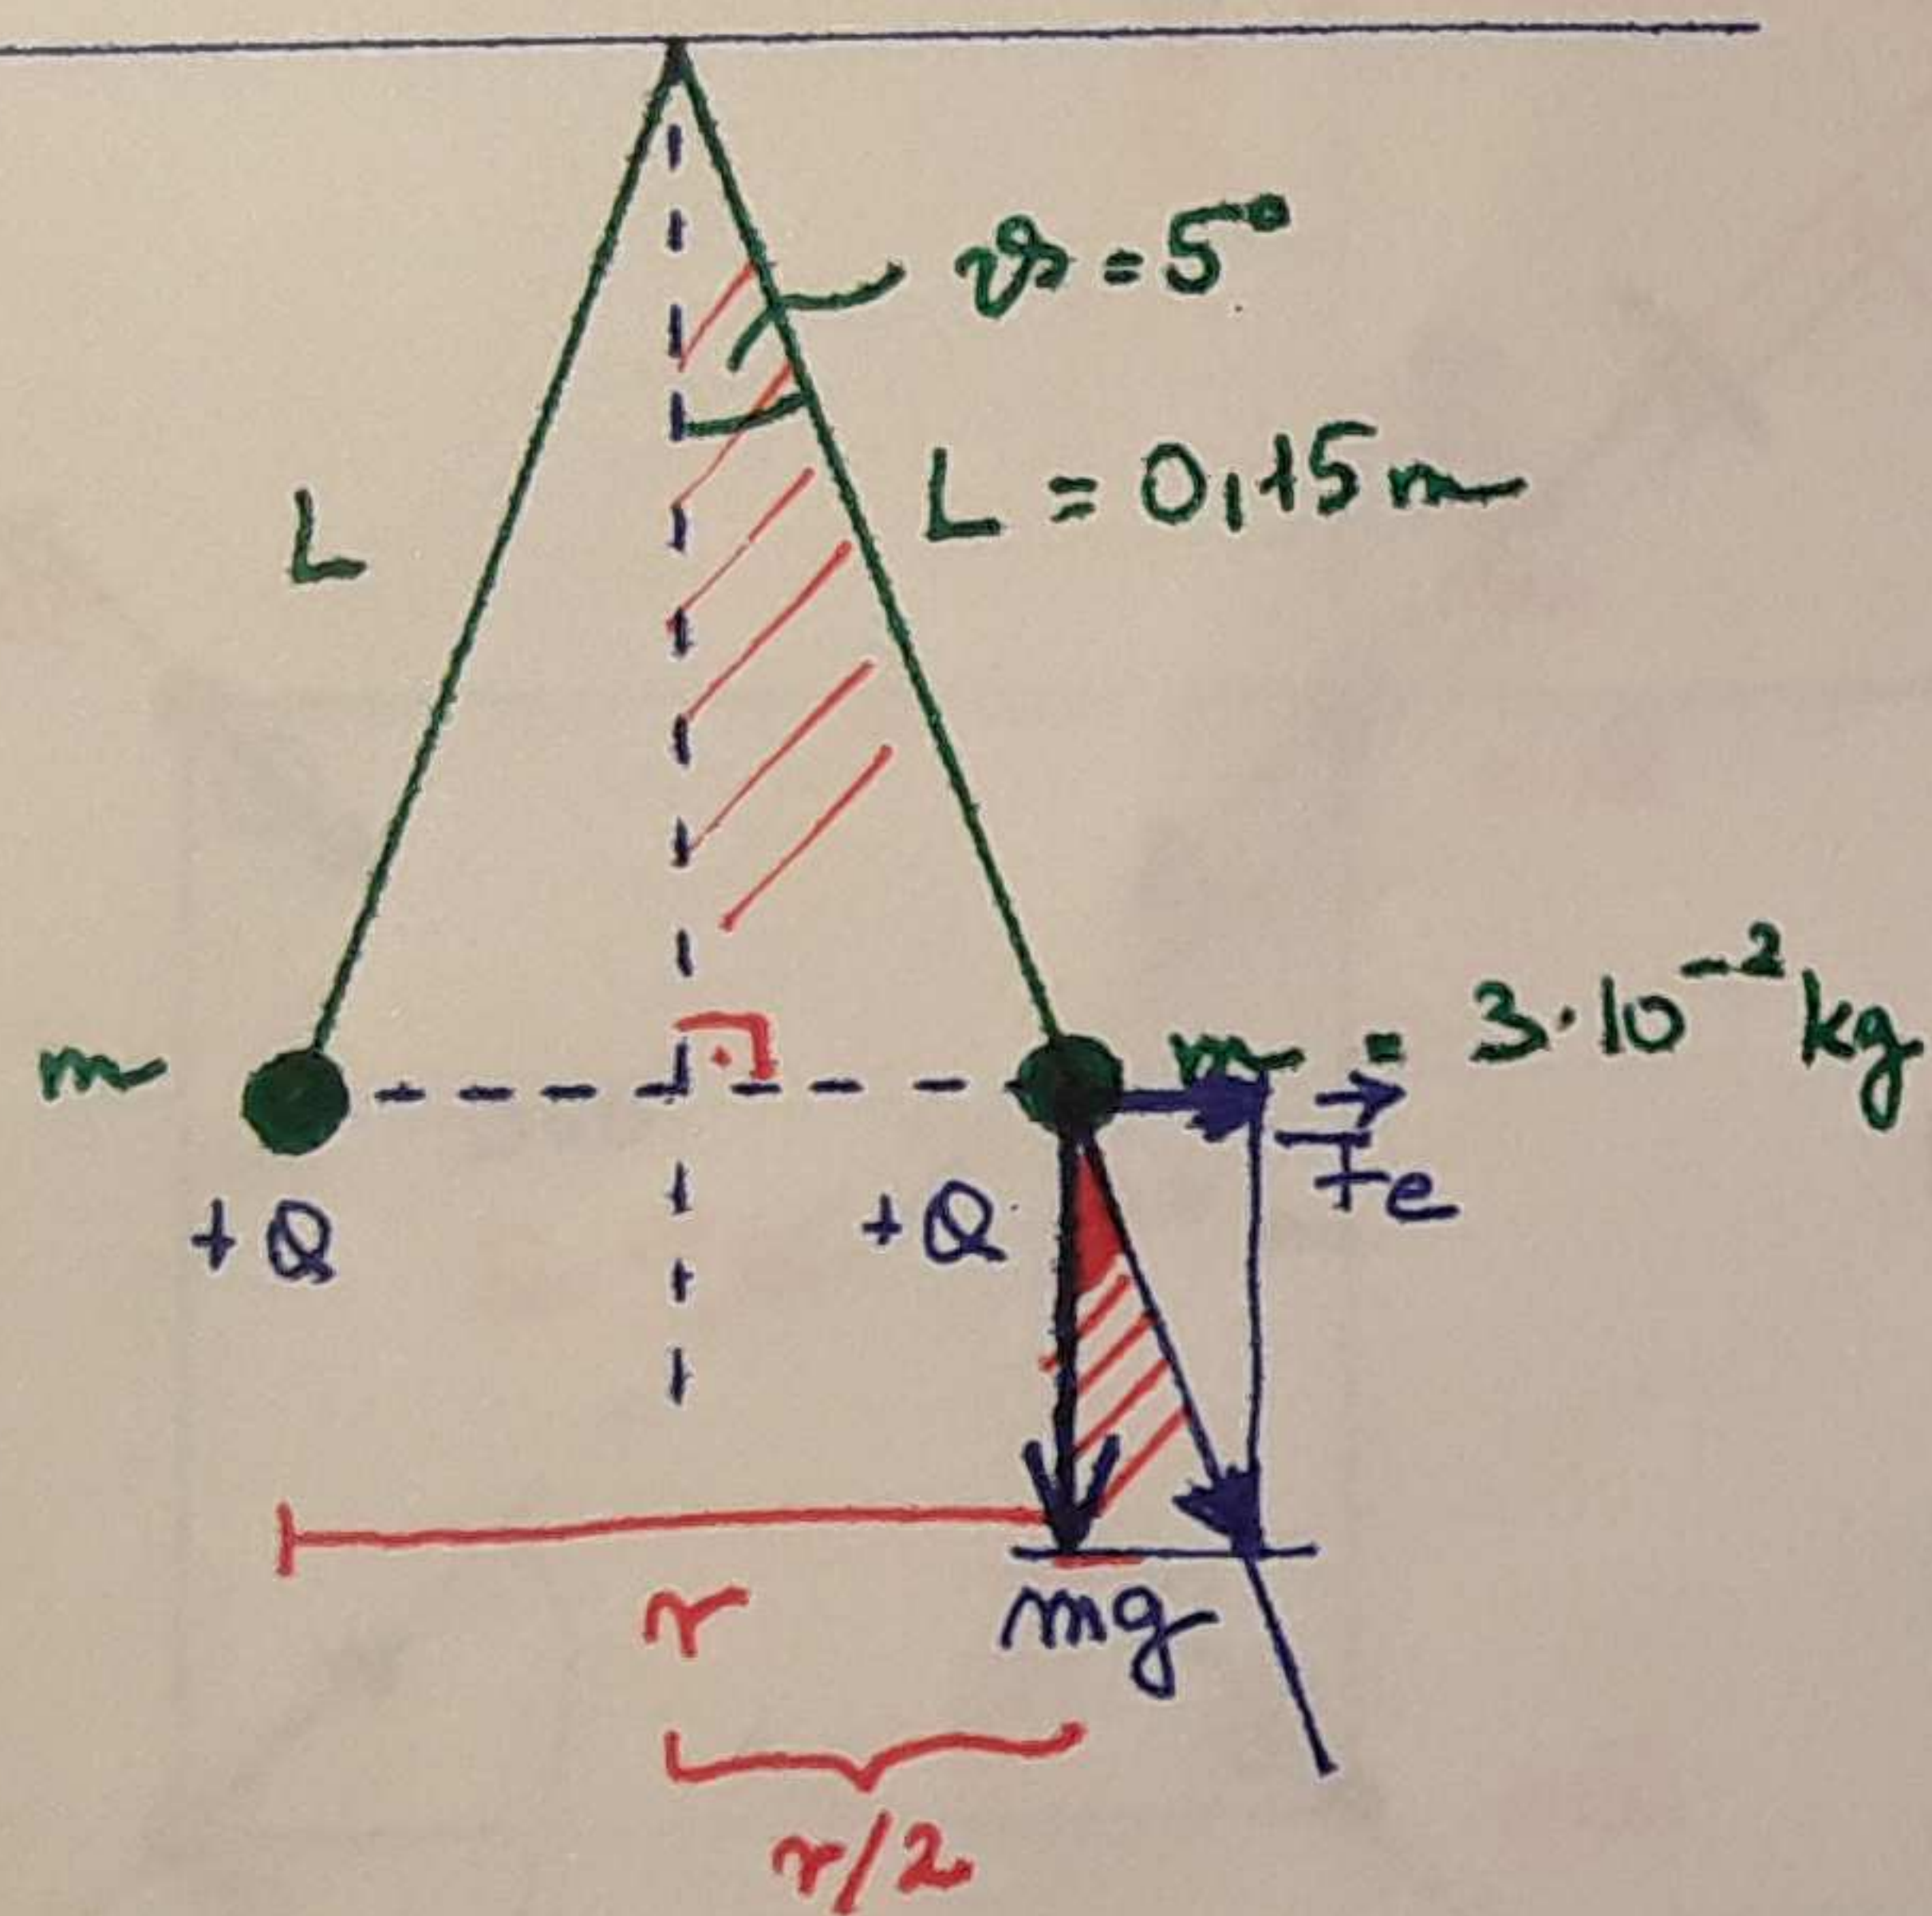 ϑ = 5°
L
L = 0,15 m
m
m = 3·10⁻² kg
+Q
+Q
F⃗e
r
mg
r/2